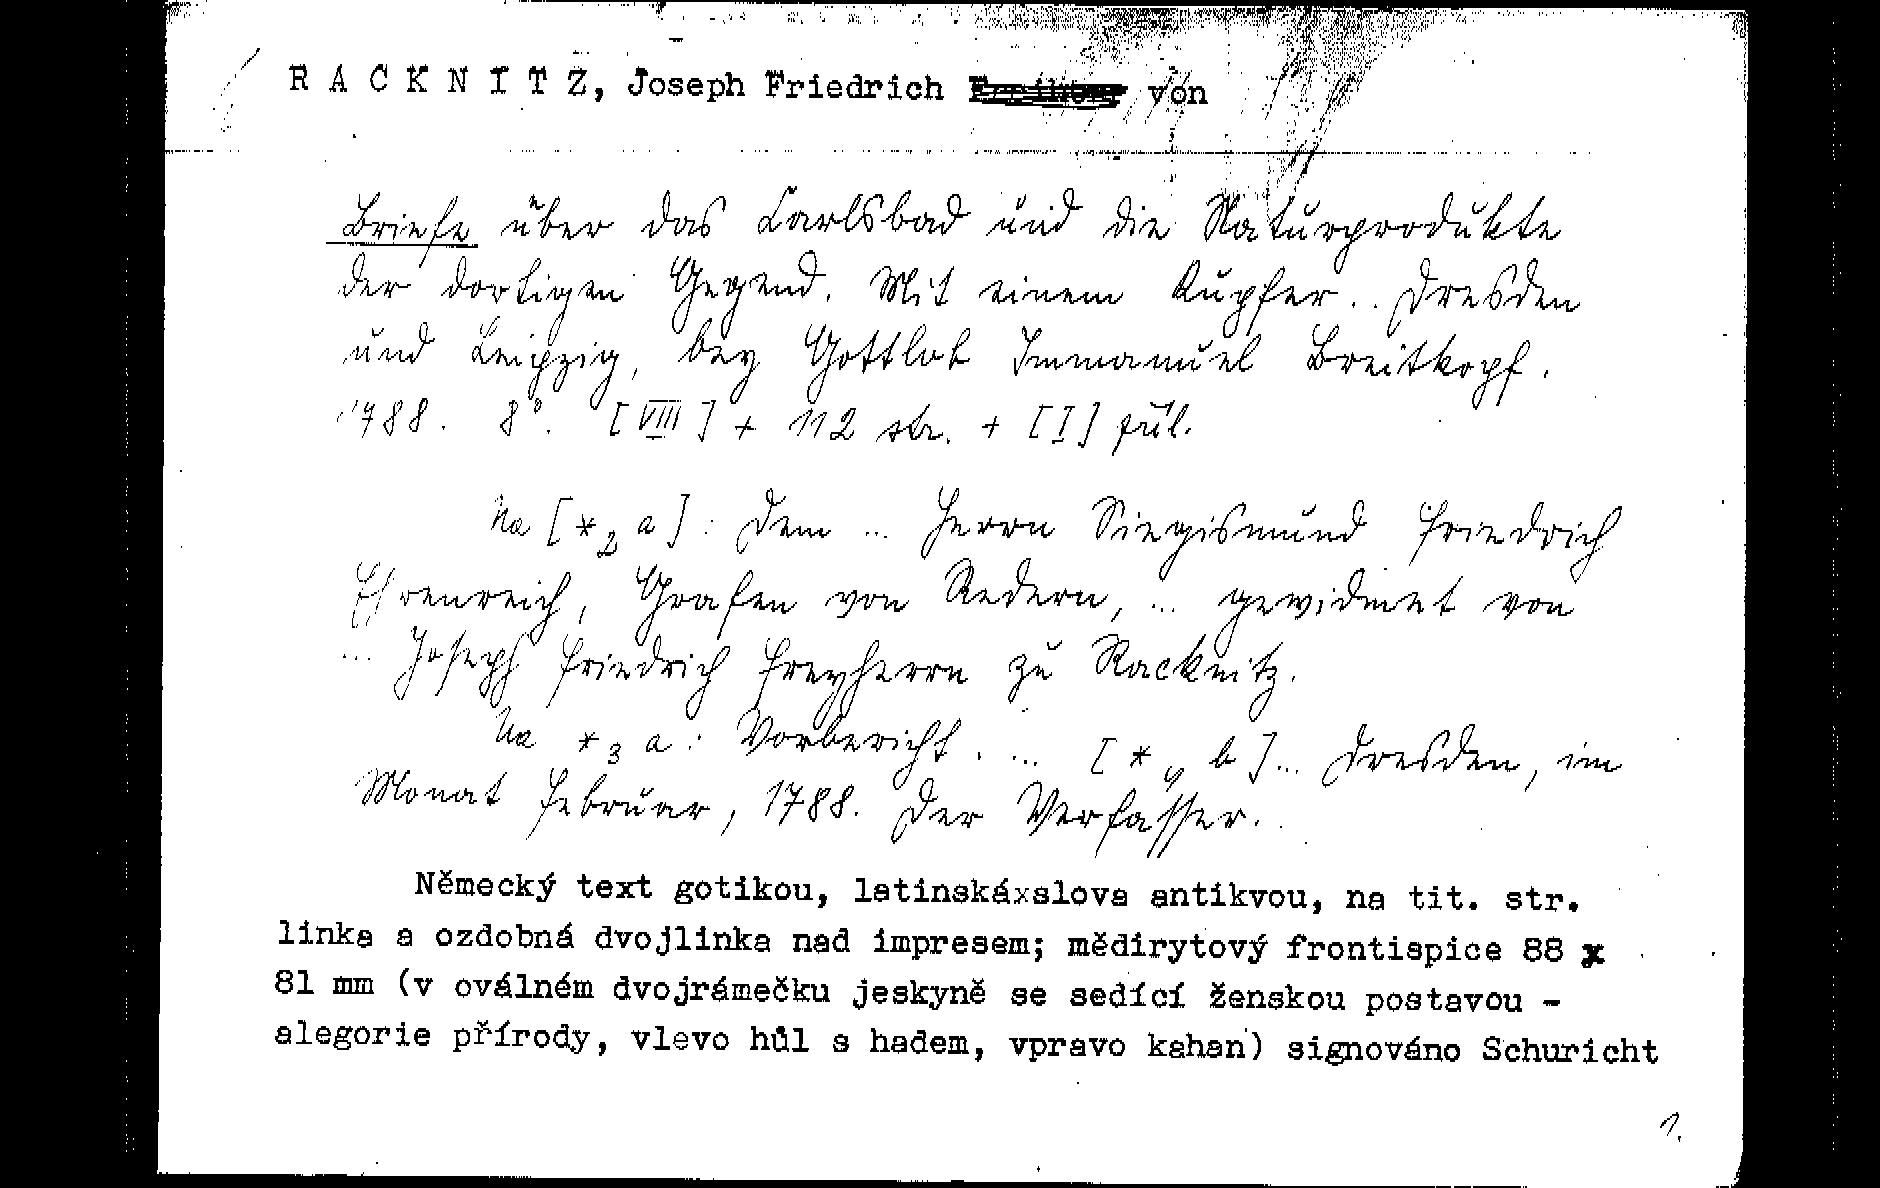 R A C K N I T Z, Joseph Friedrich von
Briefe über das Carlsbad und die Naturprodukte
der dortigen Gegend. Mit einem Kupfer.. Dresden
und Leipzig, bey Gottlob Immanuel Breitkopf.
1788. 8°. [VIII] + 112 str. + [I] příl.
Na [*2 a]: Dem ... Herrn Siegismund Friedrich
Ehrenreich, Grafen von Redern, ... gewidmet von
... Joseph Friedrich Freyherrn zu Racknitz.
Na *3 a: Vorbericht. ... [*4 b]... Dresden, im
Monat Februar, 1788. Der Verfasser.
Německý text gotikou, latinskáxslova antikvou, na tit. str.
linka a ozdobná dvojlinka nad impresem; mědirytový frontispice 88 x
81 mm (v oválném dvojrámečku jeskyně se sedící ženskou postavou -
alegorie přírody, vlevo hůl s hadem, vpravo kahan) signováno Schuricht
1.